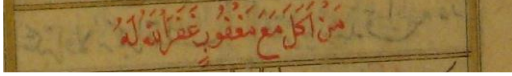 مَنْ اَكَلَ مَعَ مَغْفُورٍ غَفَرَ اللّٰهُ لَهُ